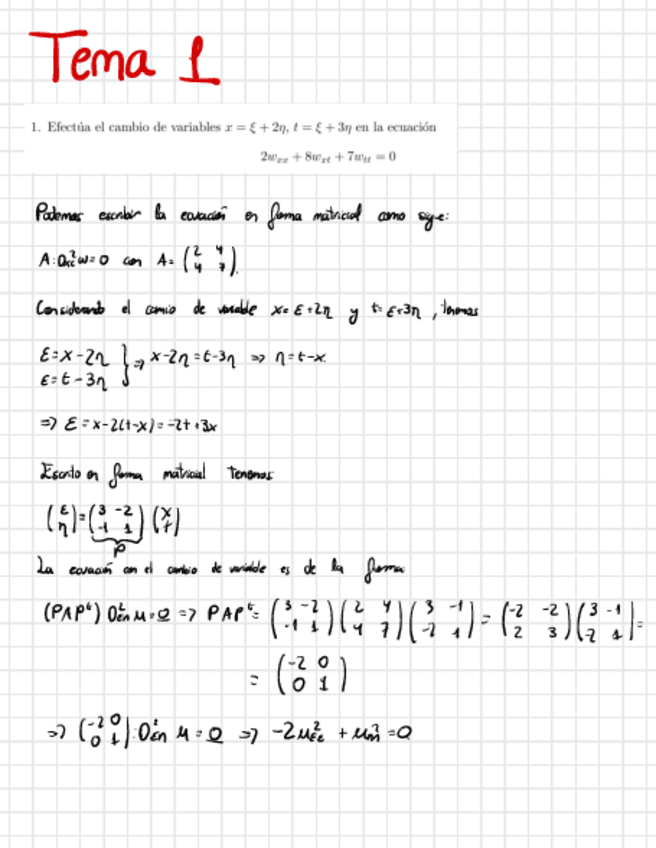 Tema 1
1. Efectúa el cambio de variables x = ξ + 2η, t = ξ + 3η en la ecuación
2w_xx + 8w_xt + 7w_tt = 0
Podemos escribir la ecuación en forma matricial como sigue:
A:D²_xt w=0 con A= (2 4; 4 7).
Considerando el camio de variable x= ε+2η y t= ε+3η, tenemos
ε=x-2η
ε=t-3η } => x-2η=t-3η => η=t-x
=> ε=x-2(t-x)=-2t+3x
Escrito en forma matricial tenemos
(ε; η)=(3 -2; -1 1)(x; t)
P
La ecuación con el cambio de variable es de la forma
(PAPᵗ) D²_εη u=0 => PAPᵗ= (3 -2; -1 1)(2 4; 4 7)(3 -1; -2 1)=(-2 -2; 2 3)(3 -1; -2 1)=
= (-2 0; 0 1)
=> (-2 0; 0 1):D²_εη u=0 => -2u²_εε + u²_ηη=0